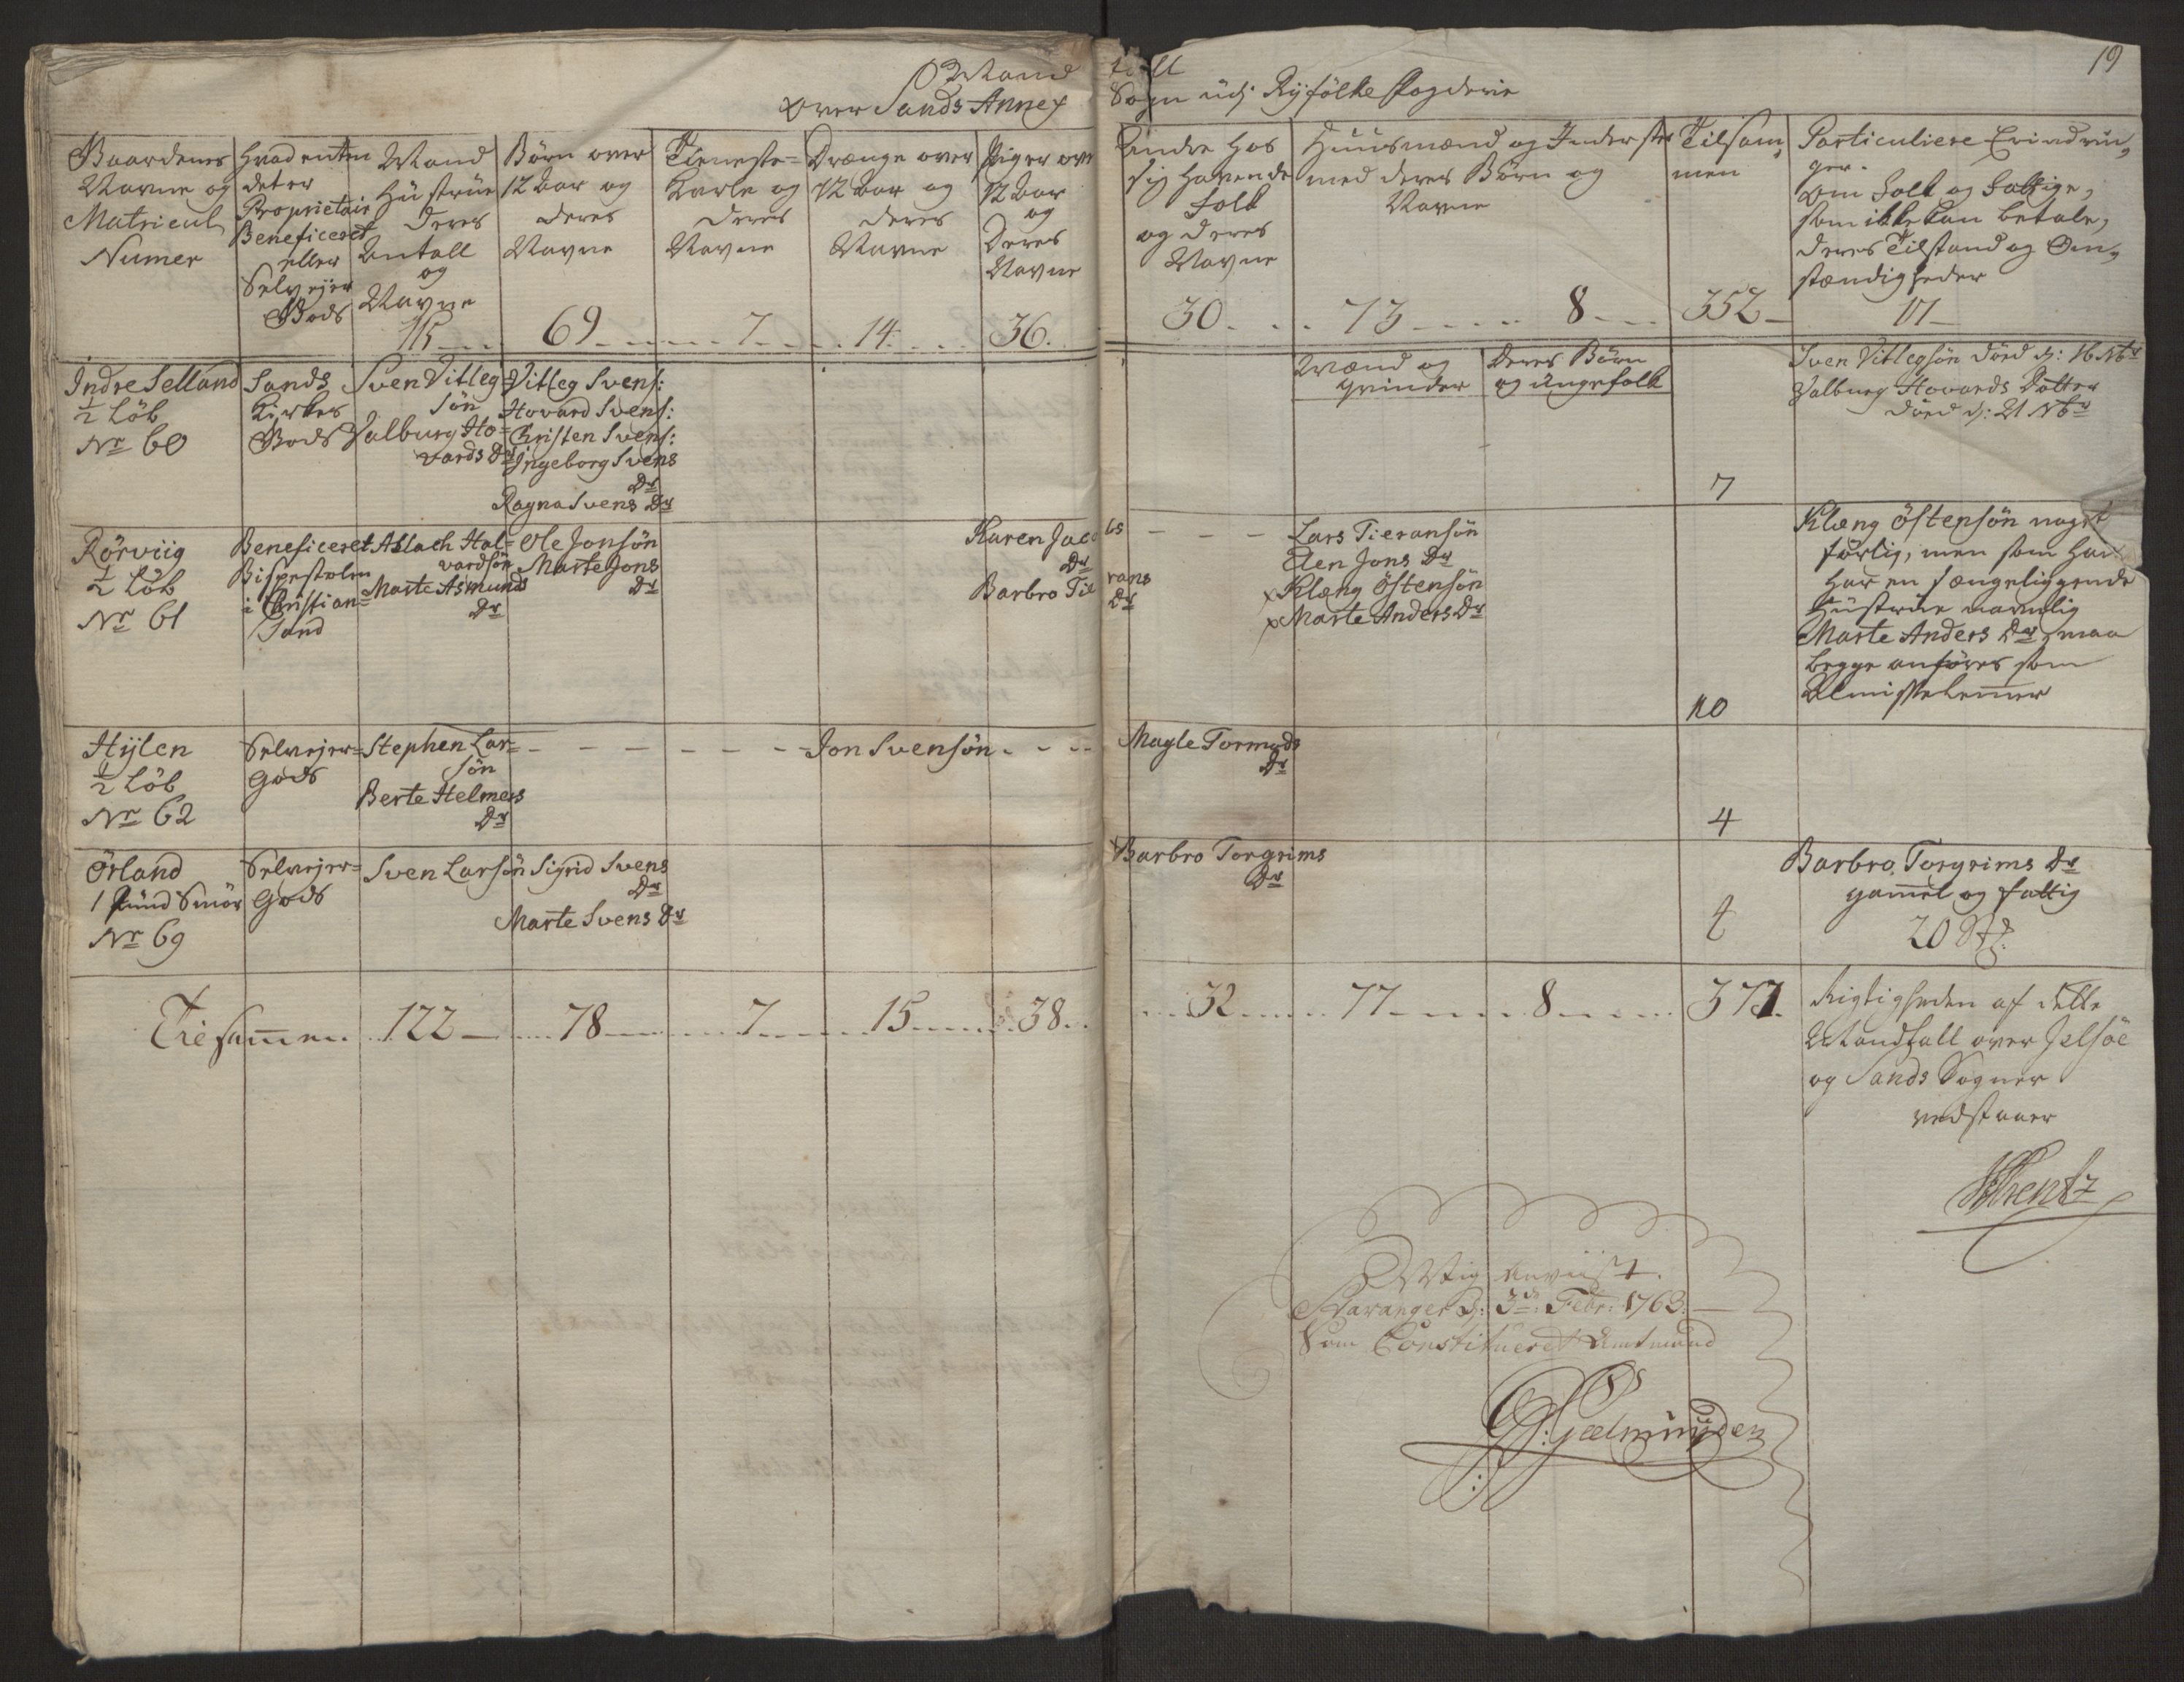 19
Mand tall
over Sands Annex Sogn udj Ryfölke Fogderie
Gaardenes
Navne og
Matricul
Numer
Hvad enten
det er
Proprietair
Beneficeret
eller
Selvejer
Gods
Mand
Hustrue
deres
Antall
og
Navne
115
Börn over
12 Aar og
deres
Navne
69
Tieneste=
Karle og
deres
Navne
7
Drænge over
12 Aar og
deres
Navne
14
Piger over
12 Aar
og
Deres
Navne
36
Andre hos
sig havende
Folk
og deres
Navne
30
Huusmænd og Inderster
med deres Börn og
Navne
73
8
Tilsam,
men
352
Particuliere Erindrin,
ger.
om Folk og Fattige,
som ikke kan betale,
deres Tilstand og Om,
stændigheder
17
Mænd og
qvinder
deres Börn
og ungefolk
Indre Selland
1/2 Löb
No 60
Sands
Kirkes
Gods
Sven Vitleg=
sön
Valburg Ho=
vards Dr
Vitleg Svens:
Hovard Svens:
Christen Svens:
Ingeborg Svens
Dr
Ragna Svens Dr
7
Sven Vitlegsön döed d: 16 Nbr
Valburg Hovards Dotter
döed d: 21 Nbr
Rörviig
1/2 Löb
No 61
Beneficeret
Bispestolen
i Christian=
Sand
Aslach Hal=
vardsön
Marte Asmunds
Dr
Ole Jonsön
Marte Jons
Dr
Karen Jacobs
Dr
Barbro Tierans
Dr
Lars Tieransön
Elen Jons Dr
x Klæng Östensön
x Marte Anders Dr
10
Klæng Östensön noget
förlig, men som han
har en sængeliggende
Hustrue navnlig
Marte Anders Dr, maa
begge anföres som
Almisselemmer
Hylen
1/2 Löb
No 62
Selvejer=
Gods
Stephen Lar=
sön
Berte Helmers
Dr
Jon Svensön
Magle Tormods
Dr
4
Örland
1 Pund Smör
No 69
Selvejer=
Gods
Sven Larsön
Sigrid Svens
Dr
Marte Svens Dr
Barbro Torgrims
Dr
4
Barbro Torgrims Dr
gammel og fattig
20
Tilsammen 122 78 7 15 38 32 77 8 377
Rigtigheden af dette
Mandtall over Jelsöe
og Sands Sogner
vedstaaer
Rigtig anviist.
Stavanger d: 3de Febr: 1763.
Som Constitueret Amtmand